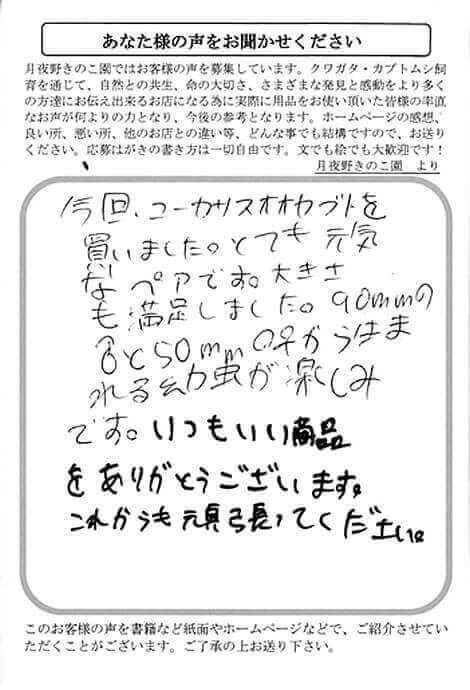 あなた様の声をお聞かせください
月夜野きのこ園ではお客様の声を募集しています。クワガタ・カブトムシ飼
育を通じて、自然との共生、命の大切さ、さまざまな発見と感動をより多く
の方達にお伝え出来るお店になる為に実際に用品をお使い頂いた皆様の率直
なお声が何よりの力となり、今後の参考となります。ホームページの感想、
良い所、悪い所、他のお店との違い等、どんな事でも結構ですので、お送り
ください。応募はがきの書き方は一切自由です。文でも絵でも大歓迎です！
月夜野きのこ園 より
今回、コーカサスオオカブトを
買いました。とても元気
なペアです。大きさ
も満足しました。90mmの
♂と50mmの♀からうまま
れる幼虫が楽しみ
です。いつもいい商品
をありがとうございます。
これからも頑張ってください。
このお客様の声を書籍など紙面やホームページなどで、ご紹介させてい
ただくことがございます。ご了承の上お送り下さい。